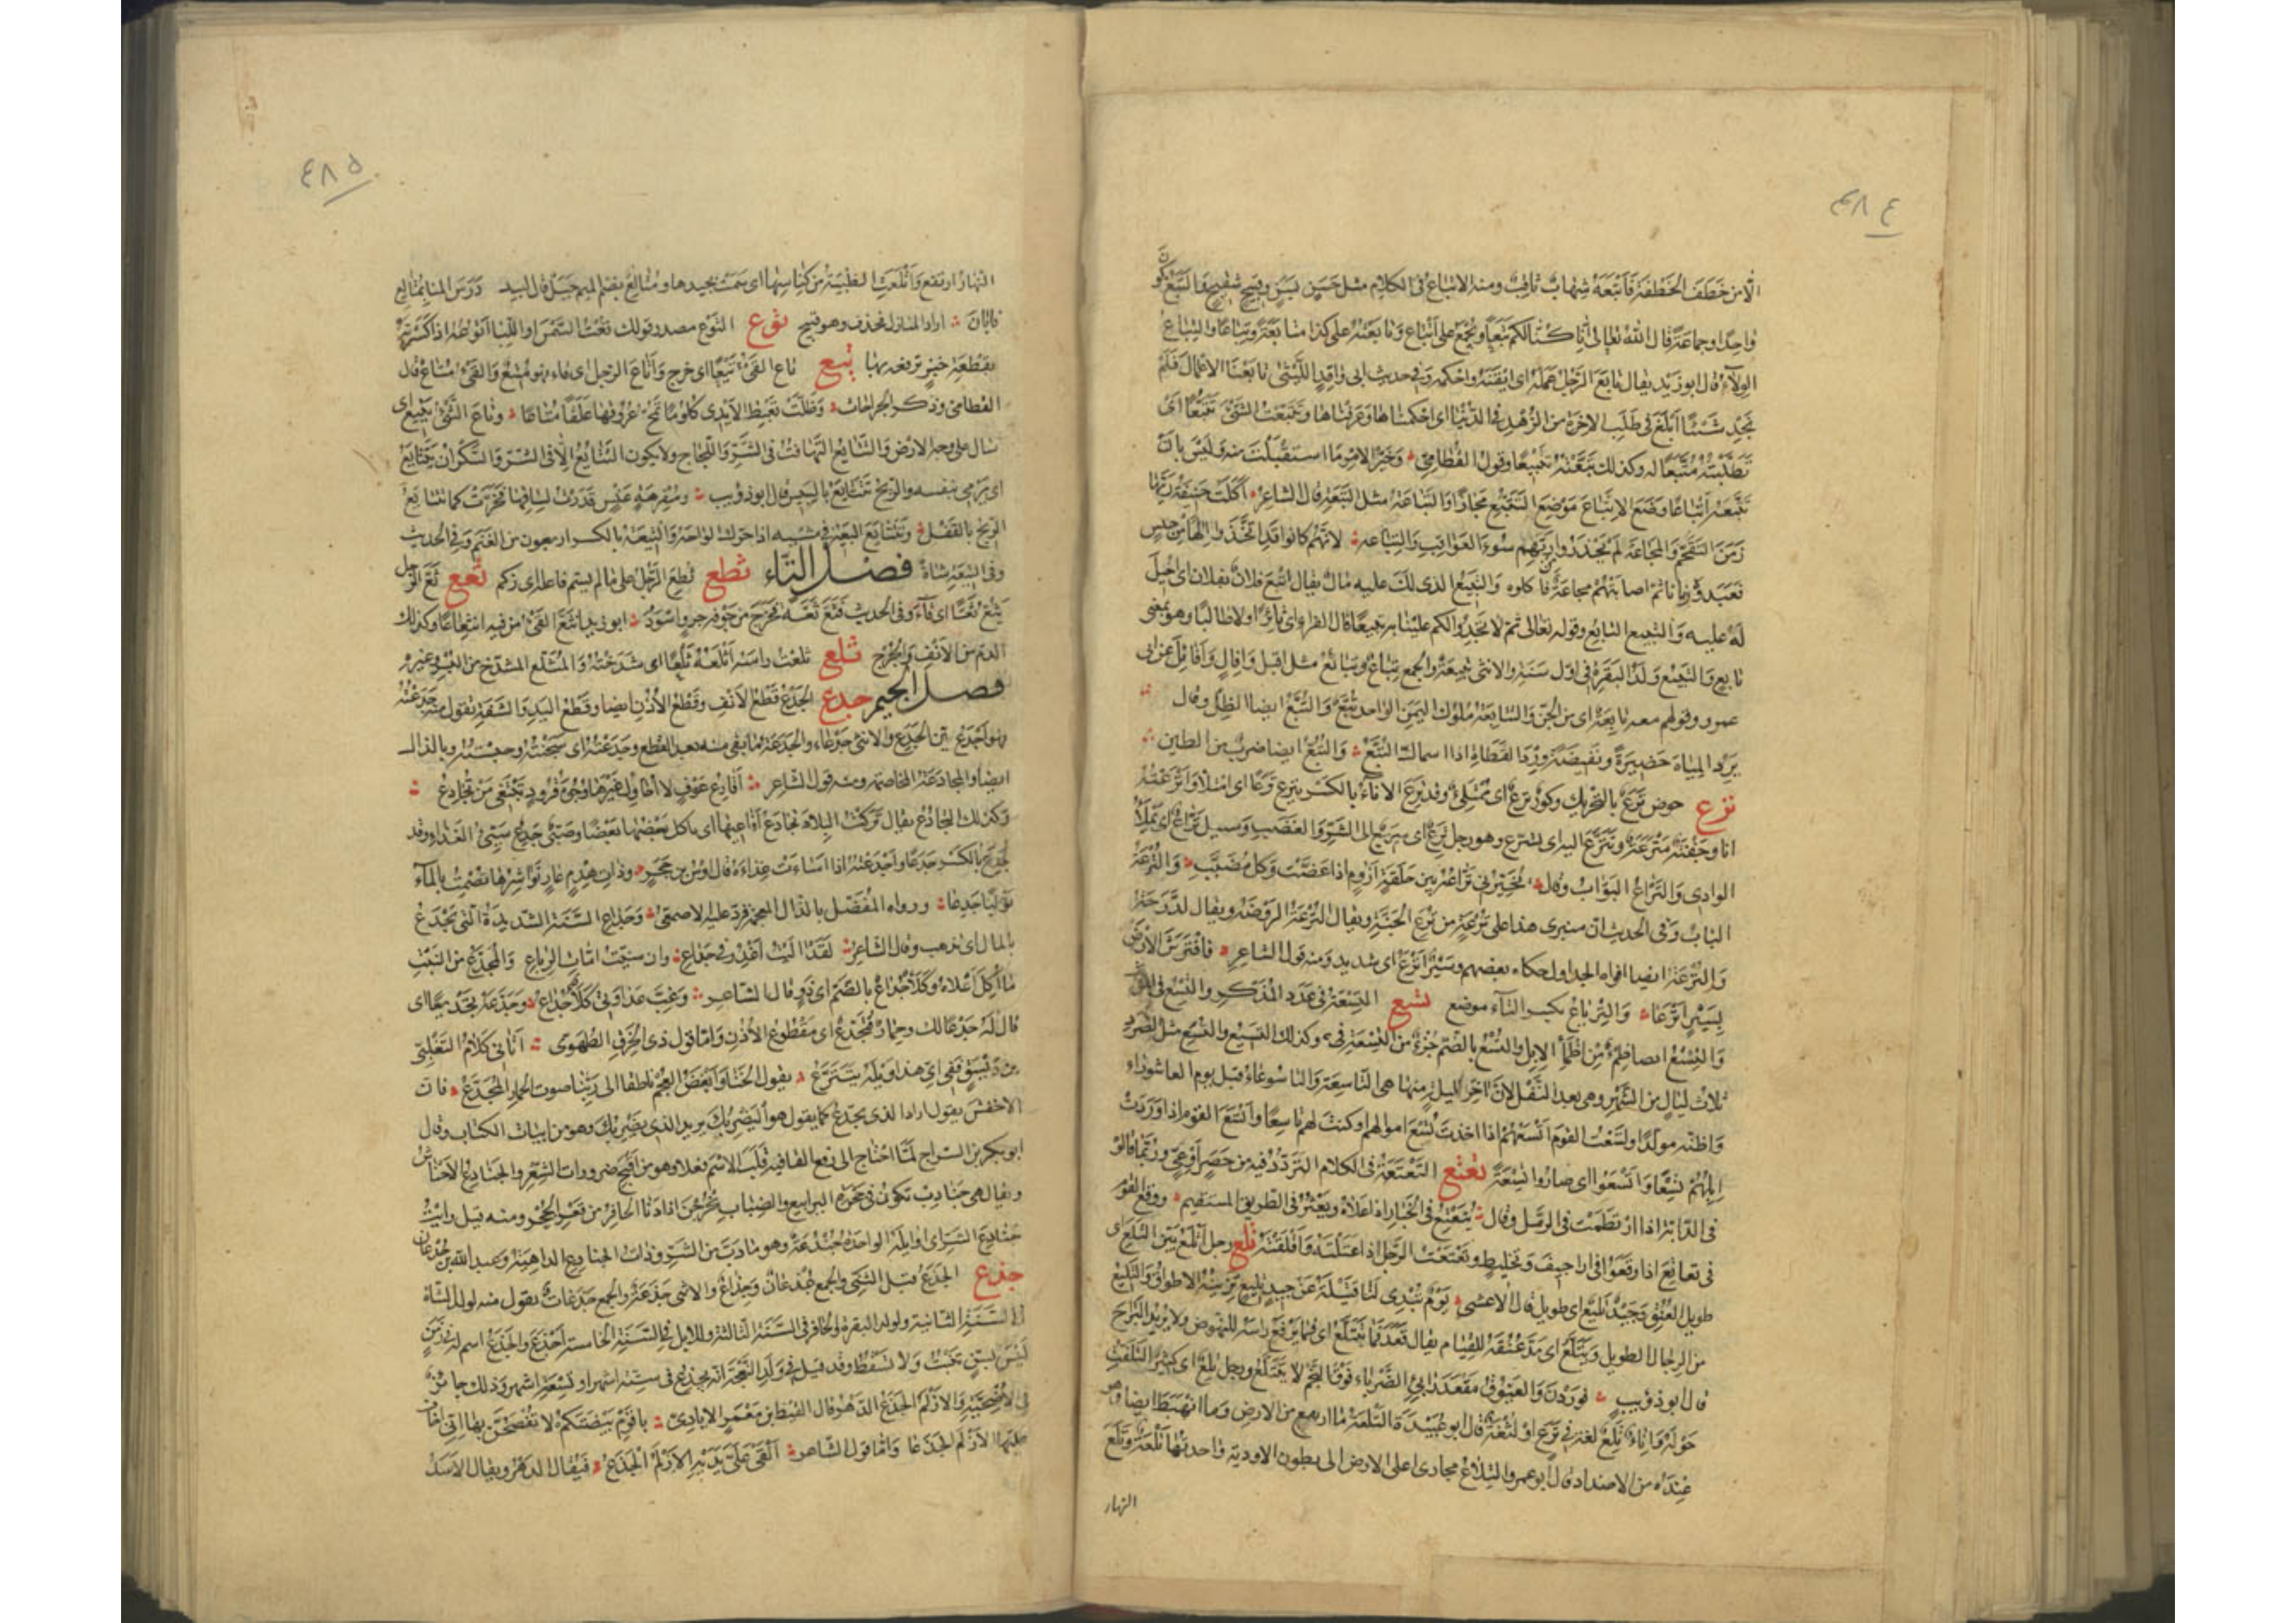 ٤٨٤
إلا من خطف الخطفة فأتبعه شهاب ثاقب ومنه الاتباع في الكلام مثل حسن بسن وقبيح شقيح والتبع يكون
واحدا وجماعة قال الله تعالى إنا كنا لكم تبعا ويجمع على أتباع وتابعته على كذا متابعة وتباعا والتباع
الولاء قال ابو زيد يقال تابع الرجل عمله اى اتقنه واحكمه وفي حديث ابى واقد الليثى تابعنا الاعمال فلم
نجد شيئا ابلغ في طلب الاخرة من الزهد في الدنيا اى احكمناها وعرفناها وتتبعت الشئ تتبعا اى
تطلبته متتبعا له وكذلك تبعته تتبيعا وقول القطامى وخير الامر ما استقبلت منه وليس بان
تتبعه اتباعا وضع الاتباع موضع التتبع مجازا والتباعة مثل التبعة قال الشاعر أكلت حنيفة ربها
زمن التقحم والمجاعة لم يحذروا من ربهم سوء العواقب والتباعه لانهم كانوا قد اتخذوا الها من حيس
فعبدوه زمانا ثم اصابتهم مجاعة فاكلوه والتبيع الذى لك عليه مال يقال اتبع فلان بفلان اى احيل
له عليه والتبيع التابع وقوله تعالى ثم لا تجدوا لكم علينا به تبيعا قال الفراء اى ثائرا ولا طالبا وهو بمعنى
تابع والتبيع ولد البقرة في اول سنة والانثى تبيعة والجمع تباع وتبائع مثل افيل وافال وافائل عن ابى
عمرو وقولهم معه تابعة اى من الجن والتبابعة ملوك اليمن الواحد تبع والتبع ايضا الظل وقال
يرد المياه حضيرة ونفيضة ورد القطاة اذا اسمأل التبع والتبع ايضا ضرب من الطير
ترع حوض ترع بالتحريك وكوز ترع اى ممتلئ وقد ترع الاناء بالكسر يترع ترعا اى امتلا واترعته
انا وجفنة مترعة وتترع اليه اى تسرع وهو رجل ترع اى سريع الى الشر والغضب وسيل تراع اى يملا
الوادى والتراع البواب وقال يخيرنى تراعه بين حلقة ازوم اذا عضت وكبل مضبب والترعة
الباب وفي الحديث ان منبرى هذا على ترعة من ترع الجنة ويقال الترعة الروضة ويقال الدرجة
والترعة ايضا افواه الجداول حكاه بعضهم وسير اترع اى شديد ومنه قول الشاعر فافترش الارض
بسير اترعا والترياع بكسر التاء موضع تسع التسعة في عدد المذكر والتسع في المؤنث
والتسع ايضا ظمء من اظماء الابل والتسع بالضم جزء من التسعة وكذلك التسيع والتسع مثل الصرد
ثلاث ليال من الشهر وهى بعد النفل لان اخر ليلة منها هى التاسعة والتاسوعاء قبل يوم العاشوراء
واظنه مولدا وتسعت القوم اتسعهم اذا اخذت تسع اموالهم او كنت لهم تاسعا واتسع القوم اذا وردت
ابلهم تسعا واتسعوا اى صاروا تسعة تعتع التعتعة في الكلام التردد فيه من حصر او عى وربما قالوا
في الدابة اذا ارتطمت في الرمل وقال يتعتع في الخبار اذا علاه ويعثر في الطريق المستقيم ووقع القوم
في تعاتع اذا وقعوا في اراجيف وتخليط وتعتعت الرجل اذا عتلته واقلقته تلع رجل اتلع بين التلع اى
طويل العنق وجيد تليع اى طويل قال الاعشى يوم تبدى لنا قتيلة عن جيد تليع تزينه الاطواق والتليع
من الرجال الطويل وتتلع اى مد عنقه للقيام يقال قعد فما يتتلع اى فما يرفع راسه للنهوض ولا يريد البراح
قال ابو ذؤيب فوردن والعيوق مقعد رابئ الضرباء فوق النجم لا يتتلع ورجل تلع اى كثير التلفت
حوله واناء تلع لغة في ترع او لثغة قال ابو عبيدة التلعة ما ارتفع من الارض وما انهبط ايضا وهو
عنده من الاضداد قال ابو عمرو التلاع مجارى اعلى الارض الى بطون الاودية واحدتها تلعة وتلع
النهار
٤٨٥
النهار ارتفع واتلعت الظبية من كناسها اى سمت بجيدها ومتالع بضم الميم جبل قال لبيد درس المنا بمتالع
فابان اراد المنازل فحذف وهو قبيح توع التوع مصدر قولك تعت السمن او اللبا اتوعه اذا كسرته
بقطعة خبز ترفعه بها تيع تاع القئ تيعا اى خرج واتاع الرجل اى قاء فهو متيع والقئ متاع قال
القطامى وذكر الجراحات وظلت تعبط الايدى كلوما تمج عروقها علقا متاعا وتاع الشئ يتيع اى
سال على وجه الارض والتتايع التهافت في الشر واللجاج ولا يكون التتايع الا في الشر والسكران يتتايع
اى يرمى بنفسه والريح تتتايع باليبيس قال ابو ذؤيب ومفرهة عنس قدرت لساقها فخرت كما تتايع
الريح بالقفل وتتايع البعير في مشيه اذا حرك الواحه والتيعة بالكسر اربعون من الغنم وفي الحديث
وفي التيعة شاة فصل الثاء ثطع ثطع الرجل على ما لم يسم فاعله اى زكم ثعع ثع الرجل
يثع ثعا اى قاء وفي الحديث فثع ثعة فخرج من جوفه جرو اسود ابو زيد انثع القئ من فيه انثعاعا وكذلك
الدم من الانف والجرح ثلع ثلعت راسه اثلعه ثلعا اى شدخته والمثلع المشدخ من البسر وغيره
فصل الجيم جدع الجدع قطع الانف وقطع الاذن ايضا وقطع اليد والشفة تقول منه جدعته
فهو اجدع بين الجدع والانثى جدعاء والجدعة ما بقى منه بعد القطع وجدعته اى سجنته وحبسته وبالذال
ايضا والمجادعة المخاصمة ومنه قول الشاعر اقارع عوف لا احاول غيرها وجوه قرود تبتغى من تجادع
وكذلك التجادع يقال تركت البلاد تجادع افاعيها اى ياكل بعضها بعضا وصبى جدع سيئ الغذاء وقد
جدع بالكسر جدعا واجدعته اذا اساءت غذاءه قال اوس بن حجر وذات هدم عار نواشرها تصمت بالماء
تولبا جدعا ورواه المفضل بالذال المعجمة فرد عليه الاصمعى وجداع السنة الشديدة التى تجدع
بالمال اى تذهب وقال الشاعر لقد اليت اغدر في جداع وان منيت امات الرباع والمجدع من النبت
ما اكل اعلاه وكلا جداع بالضم اى دو قال الشاعر وغب عداوتى كلا جداع وجدعه تجديعا اى
قال له جدعا لك وحمار مجدع اى مقطوع الاذن واما قول ذى الخرق الطهوى اتانى كلام التغلبى
بن ديسق ففى اى هذا ويله يتترع يقول الخنا وابغض العجم ناطقا الى ربنا صوت الحمار اليجدع قال
الاخفش يقول اراد الذى يجدع كما يقول هو اليضربك يريد الذى يضربك وهو من ابيات الكتاب وقال
ابو بكر بن السراج لما احتاج الى رفع القافية قلب الاسم فعلا وهو من اقبح ضرورات الشعر والجنادع الاحناش
ويقال هى جنادب تكون في جحرة اليرابيع والضباب يخرجن اذا دنا الحافر من قعر الجحر ومنه قيل رايت
جنادع الشر اى اوائله الواحدة جندعة وهو ما دب من الشر وذات الجنادع الداهية وعبد الله بن جدعان
جذع الجذع قبل الثنى والجمع جذعان وجذاع والانثى جذعة والجمع جذعات تقول منه لولد الشاة
في السنة الثانية ولولد البقرة والحافر في السنة الثالثة وللابل في السنة الخامسة اجذع والجذع اسم له في زمن
ليس بسن تنبت ولا تسقط وقد قيل في ولد النعجة انه يجذع في ستة اشهر او تسعة اشهر وذلك جائز
في الاضحية والازلم الجذع الدهر قال لقيط بن معمر الايادى يا قوم بيضتكم لا تفضحن بها انى اخاف
عليها الازلم الجذعا واما قول الشاعر القى على يديه الازلم الجذع فيقال الدهر ويقال الاسد